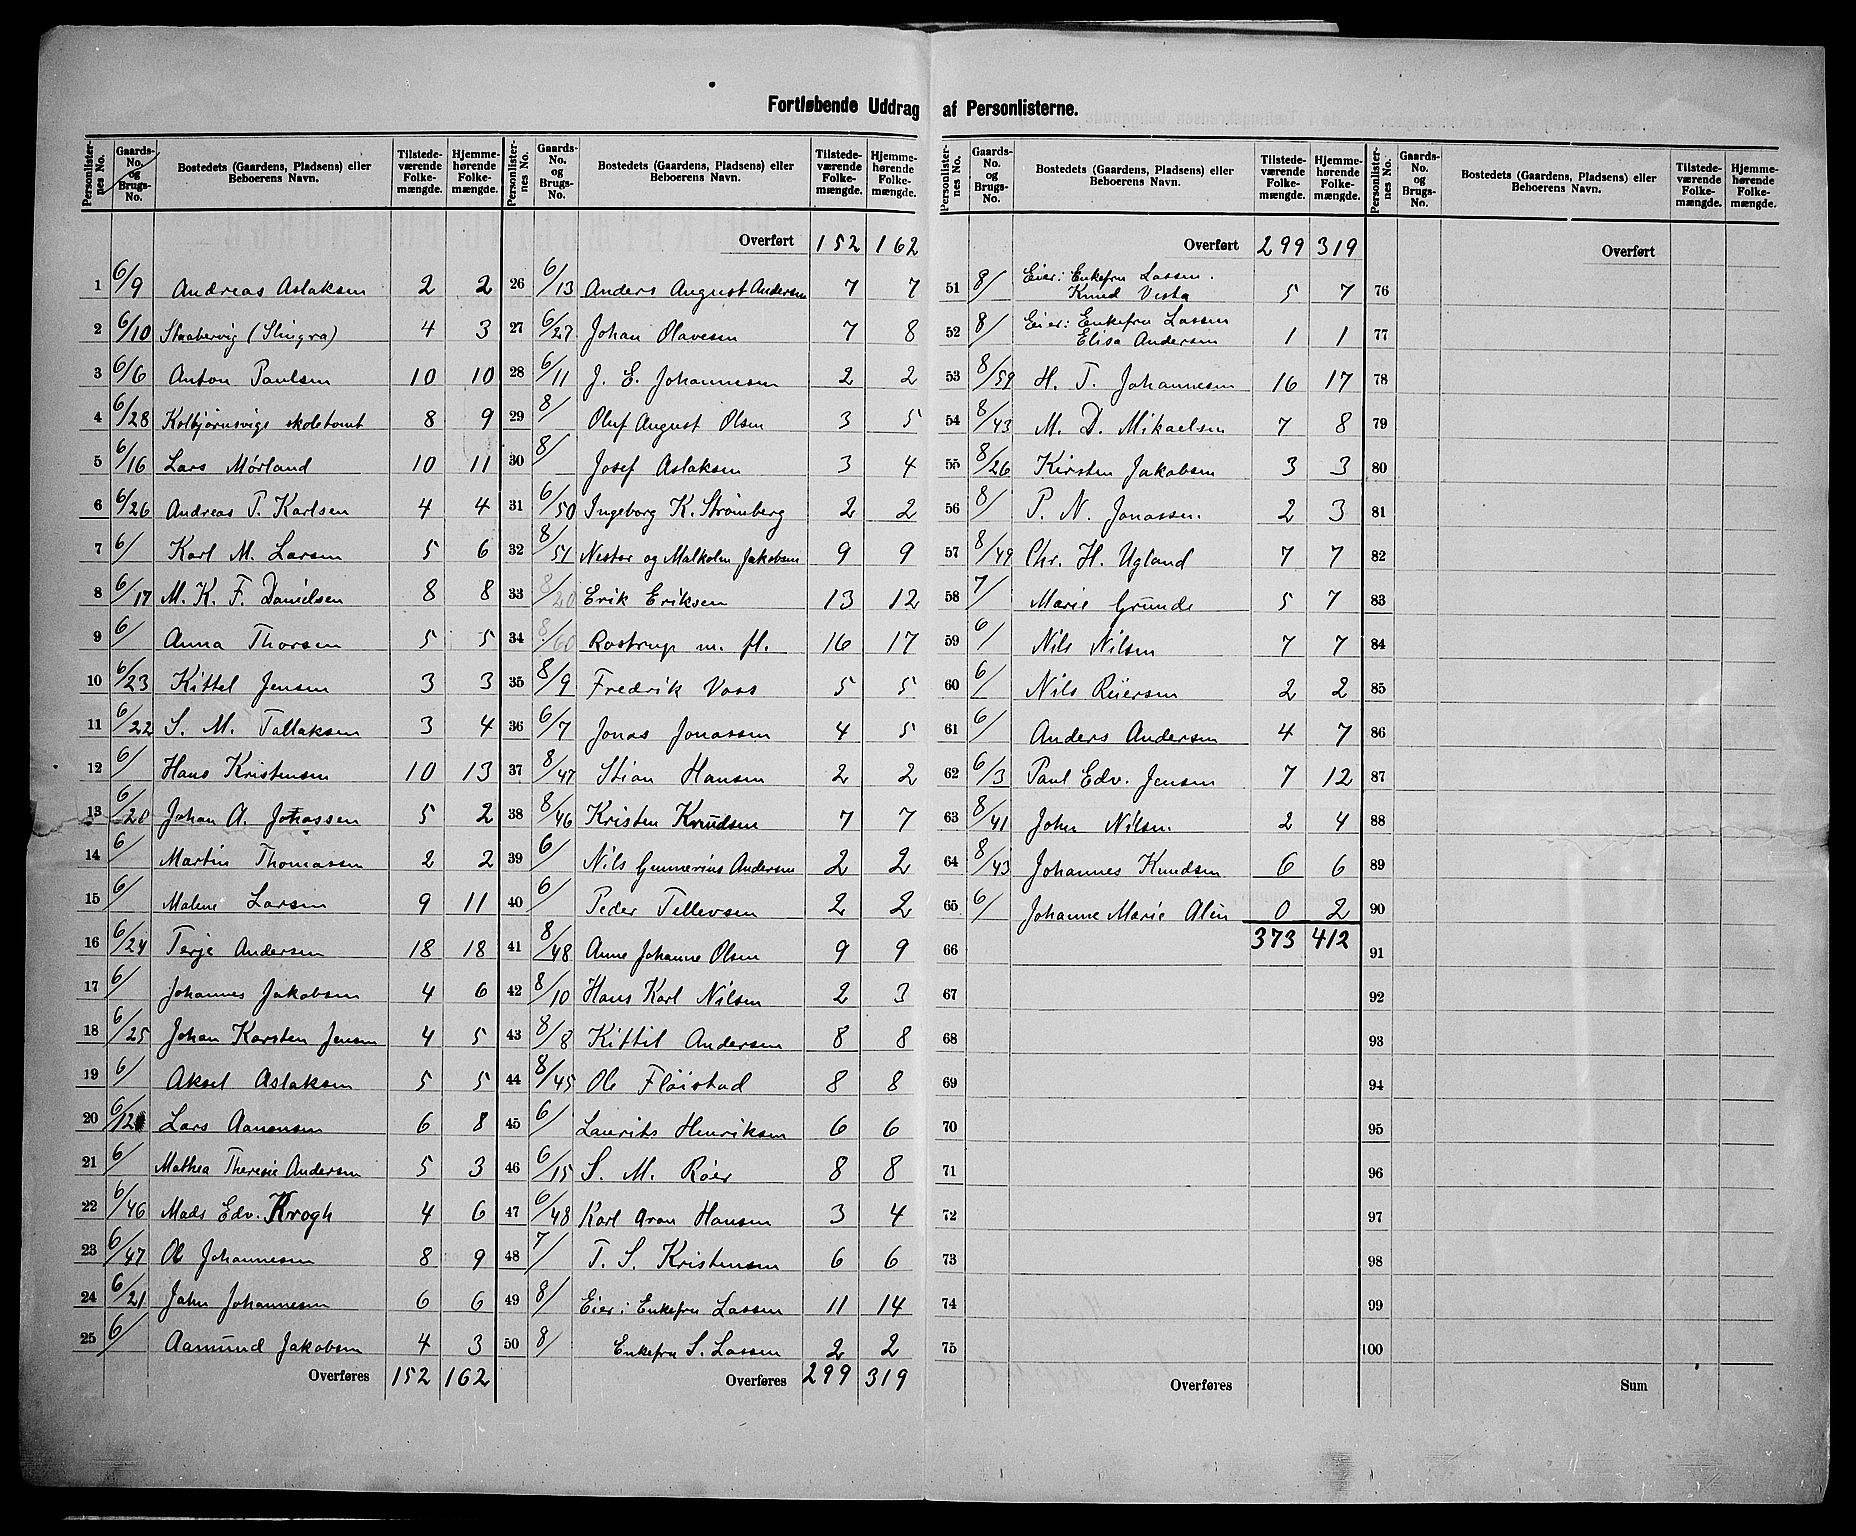 Fortløbende Uddrag af Personlisterne.
Personlisternes No. | Gaards-No. og Brugs-No. | Bostedets (Gaardens, Pladsens) eller Beboerens Navn. | Tilstedeværende Folkemængde. | Hjemmehørende Folkemængde.
1 6/9 Andreas Aslaksen 2 2
2 6/10 Staabervig (Slingra) 4 3
3 6/6 Anton Paulsen 10 10
4 6/28 Kolbjørnsvigs skoletomt 8 9
5 6/16 Lars Mørland 10 11
6 6/26 Andreas T. Karlsen 4 4
7 6/ Karl M. Larsen 5 6
8 6/17 M. K. F. Danielsen 8 8
9 6/ Anna Thorsen 5 5
10 6/23 Kittel Jensen 3 3
11 6/22 S. M. Tallaksen 3 4
12 6/ Hans Kristensen 10 13
13 6/20 Johan A. Johassen 5 2
14 6/ Martin Thomassen 2 2
15 6/ Malene Larsen 9 11
16 6/24 Terje Andersen 18 18
17 6/ Johannes Jakobsen 4 6
18 6/25 Johan Karsten Jensen 4 5
19 6/ Aksel Aslaksen 5 5
20 6/12 Lars Aanonsen 6 8
21 6/ Mathea Theresie Andersen 5 3
22 6/46 Mads Edv. Krogh 4 6
23 6/47 Ole Johannesen 8 9
24 6/21 John Johannesen 6 6
25 6/ Aamund Jakobsen 4 3
Overføres 152 162
Personlisternes No. | Gaards-No. og Brugs-No. | Bostedets (Gaardens, Pladsens) eller Beboerens Navn. | Tilstedeværende Folkemængde. | Hjemmehørende Folkemængde.
Overført 152 162
26 6/13 Anders August Andersen 7 7
27 6/27 Johan Olavesen 7 8
28 6/11 J. E. Johannesen 2 2
29 8/ Oluf August Olsen 3 5
30 8/ Josef Aslaksen 3 4
31 6/50 Ingeborg K. Strømberg 2 2
32 8/51 Nestor og Malkolm Jakobsen 9 9
33 8/20 Erik Eriksen 13 12
34 8/60 Rostrup m. fl. 16 17
35 8/9 Fredrik Voss 5 5
36 6/7 Jonas Jonassen 4 5
37 8/47 Stian Hansen 2 2
38 8/46 Kristen Knudsen 7 7
39 6/ Nils Gunnerius Andersen 2 2
40 6/ Peder Tellevsen 2 2
41 8/48 Anne Johanne Olsen 9 9
42 8/10 Hans Karl Nilsen 2 3
43 8/8 Kittil Andersen 8 8
44 8/45 Ole Fløistad 8 8
45 6/ Laurits Henriksen 6 6
46 6/15 S. M. Røer 8 8
47 6/48 Karl Aron Hansen 3 4
48 7/ T. S. Kristensen 6 6
49 8/ Eier: Enkefru Lassen 11 14
50 8/ Enkefru S. Lassen 2 2
Overføres 299 319
Personlisternes No. | Gaards-No. og Brugs-No. | Bostedets (Gaardens, Pladsens) eller Beboerens Navn. | Tilstedeværende Folkemængde. | Hjemmehørende Folkemængde.
Overført 299 319
51 8/ Eier: Enkefru Lassen.
Knud Vesta 5 7
52 8/ Eier: Enkefru Lassen
Elisa Andersen 1 1
53 8/59 H. T. Johannesen 16 17
54 8/43 M. D. Mikaelsen 7 8
55 8/26 Kirsten Jakobsen 3 3
56 8/ P. N. Jonassen. 2 3
57 8/49 Chr. H. Ugland 7 7
58 7/ Marie Grunde 5 7
59 6/ Nils Nilsen 7 7
60 6/ Nils Reiersen 2 2
61 6/ Anders Andersen 4 7
62 6/3 Paul Edv. Jensen 7 12
63 8/41 John Nilsen. 2 4
64 8/43 Johannes Knudsen 6 6
65 6/ Johanne Marie Alin 0 2
66 373 412
67
68
69
70
71
72
73
74
75
Overføres
Personlisternes No. | Gaards-No. og Brugs-No. | Bostedets (Gaardens, Pladsens) eller Beboerens Navn. | Tilstedeværende Folkemængde. | Hjemmehørende Folkemængde.
Overført
76
77
78
79
80
81
82
83
84
85
86
87
88
89
90
91
92
93
94
95
96
97
98
99
100
Sum